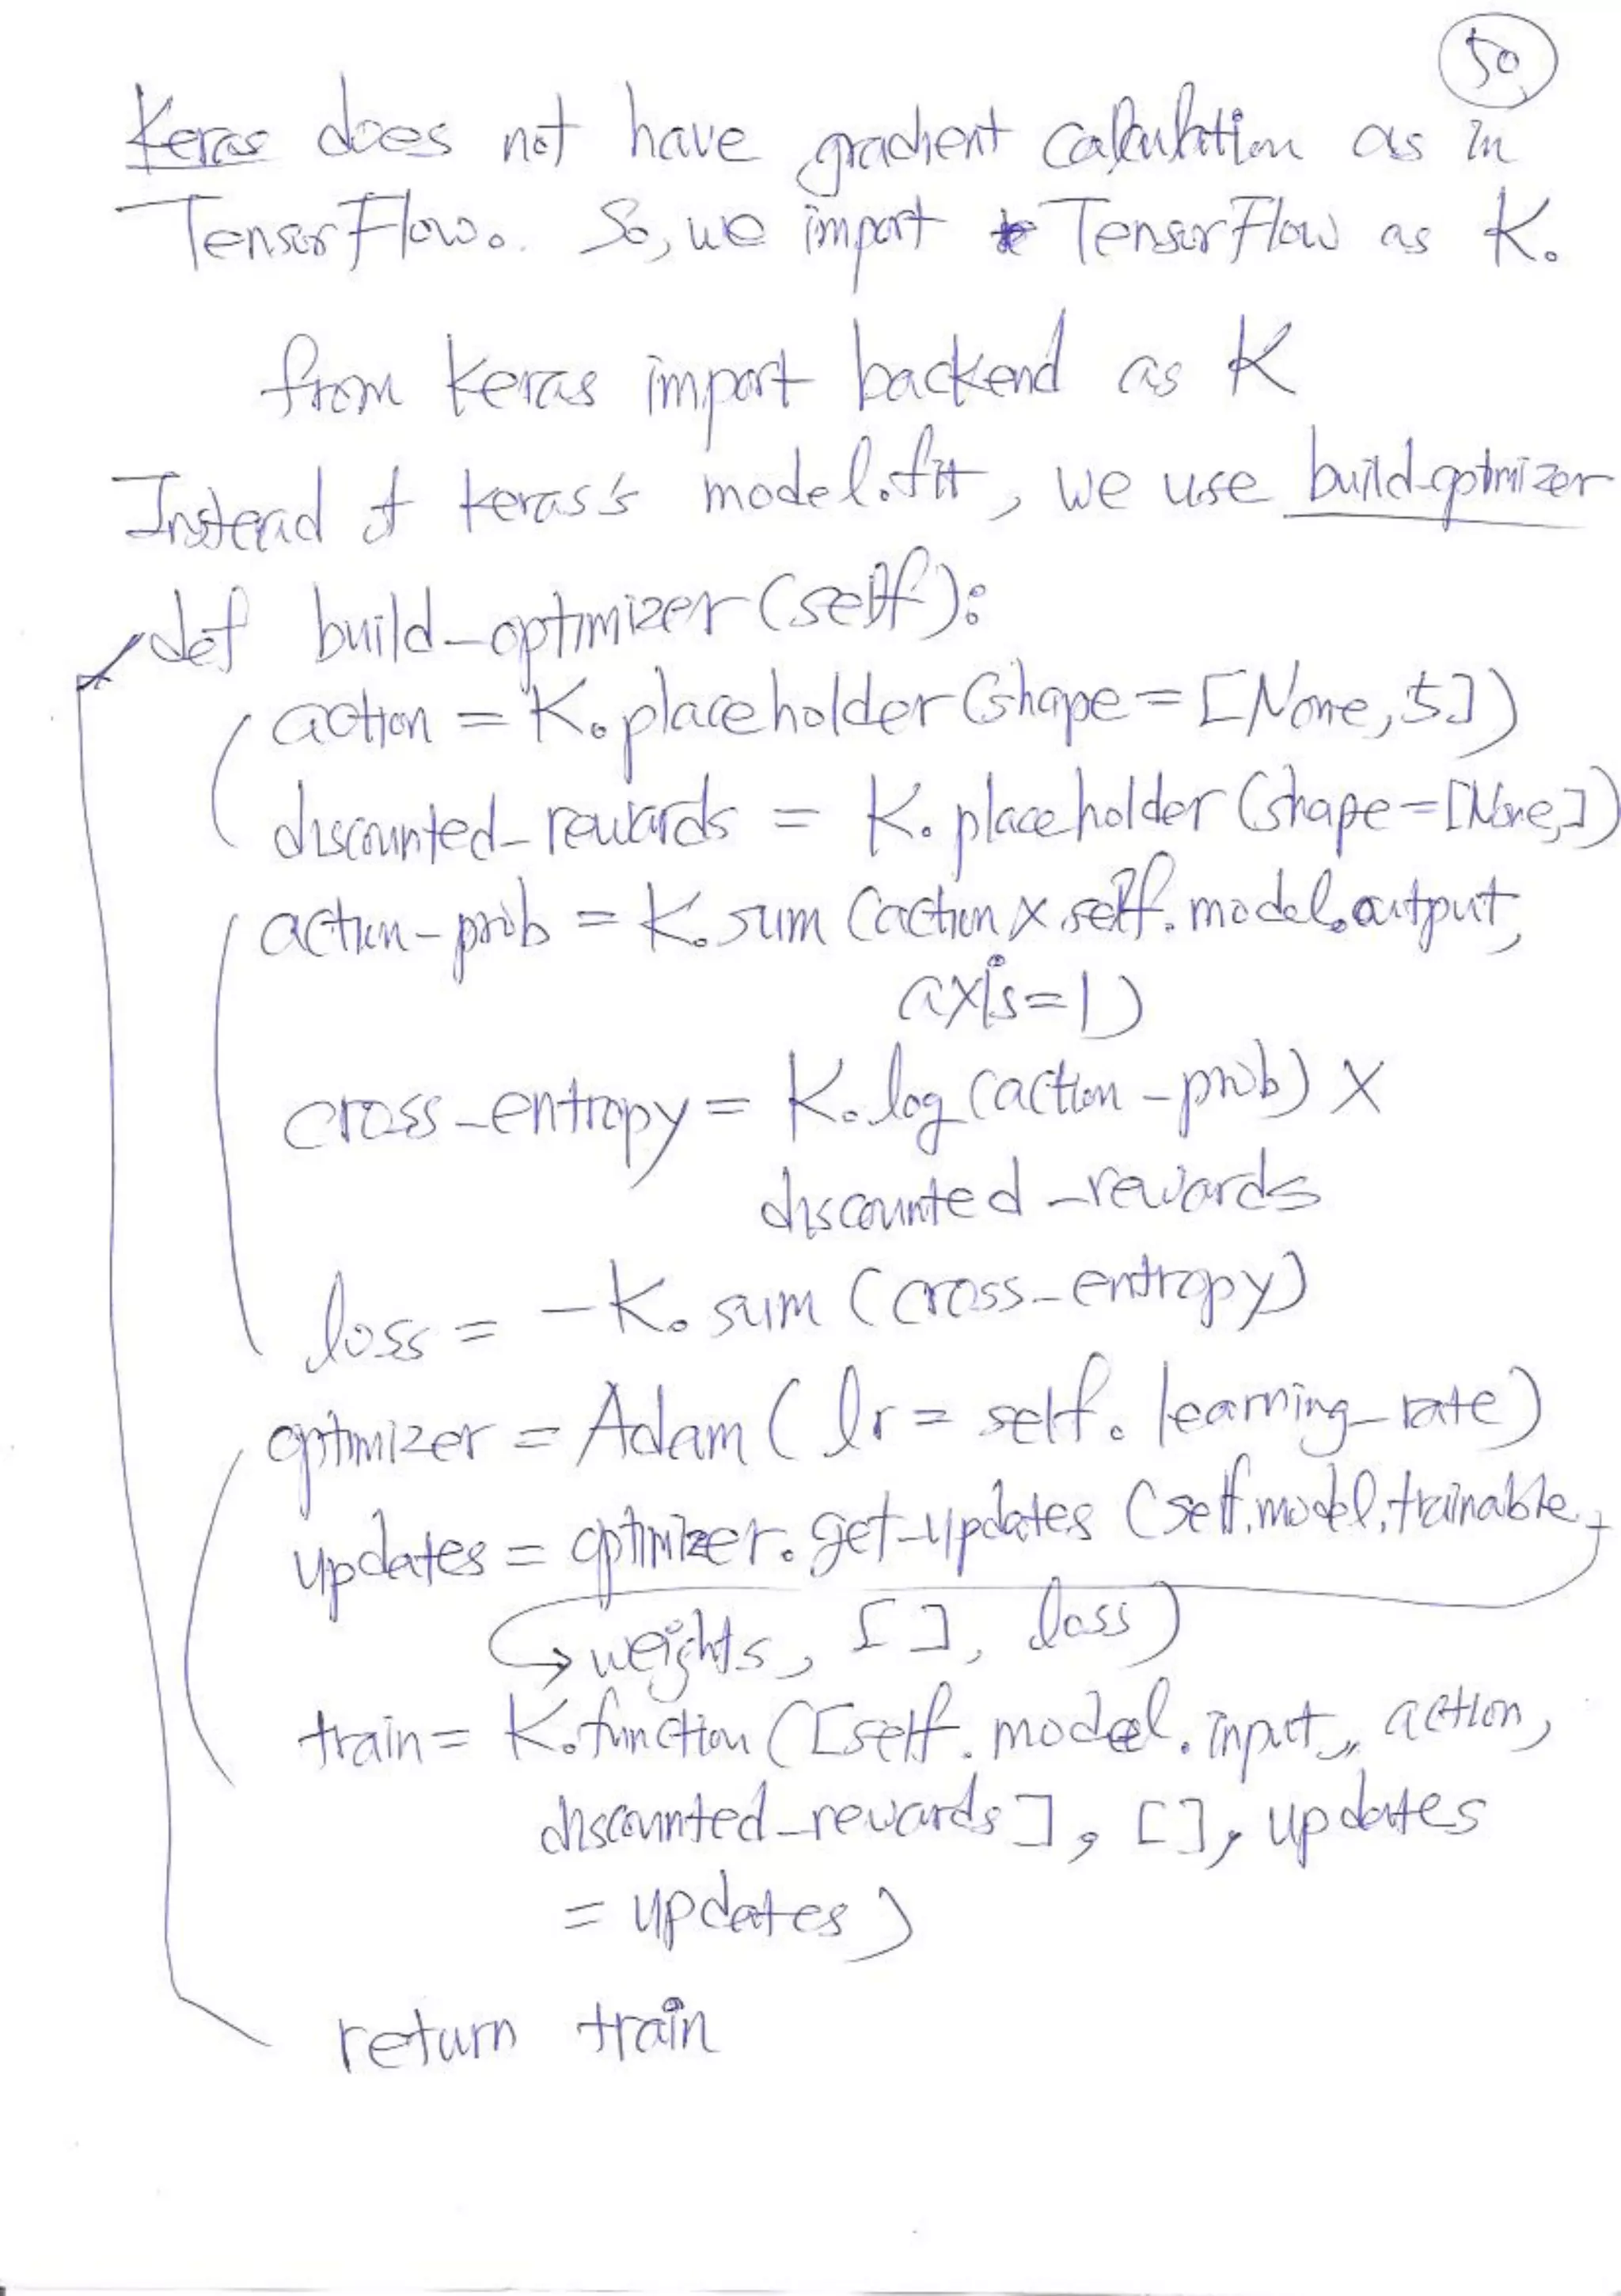 50
Keras does not have gradient calculation as in
TensorFlow. So, we import TensorFlow as K.
from keras import backend as K
Instead of keras's model.fit, we use build-optimizer
def build_optimizer(self):
action = K.placeholder(shape=[None,5])
discounted_rewards = K.placeholder(shape=[None,])
action-prob = K.sum(action x self.model.output,
axis=1)
cross_entropy = K.log(action-prob) x
discounted_rewards
loss = -K.sum(cross_entropy)
optimizer = Adam(lr = self.learning_rate)
updates = optimizer.get_updates(self.model.trainable_
weights, [], loss)
train = K.function([self.model.input, action,
discounted_rewards], [], updates
= updates)
return train